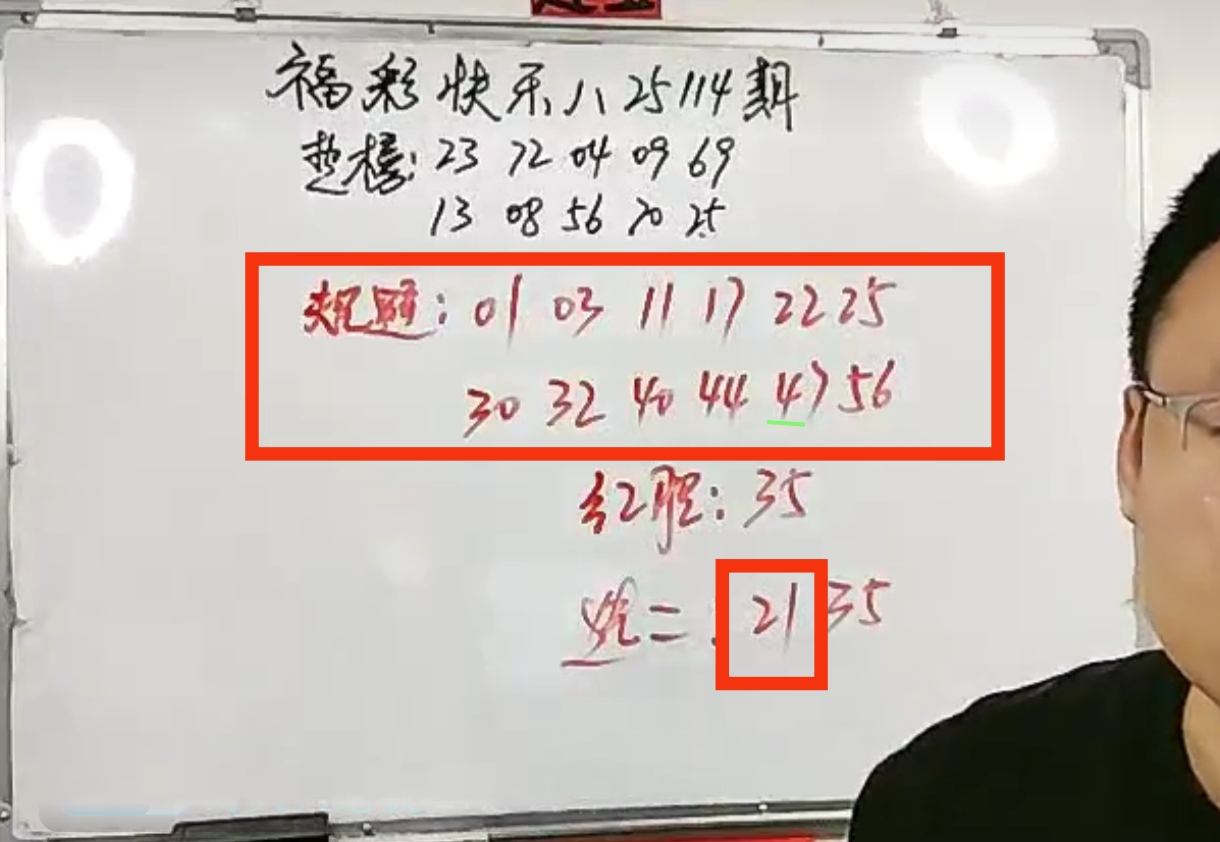 福彩快乐八25114期
楚榜: 23 72 04 09 69
13 08 56 70 25
规避: 01 03 11 17 22 25
30 32 40 44 47 56
红胆: 35
姚二: 21 35